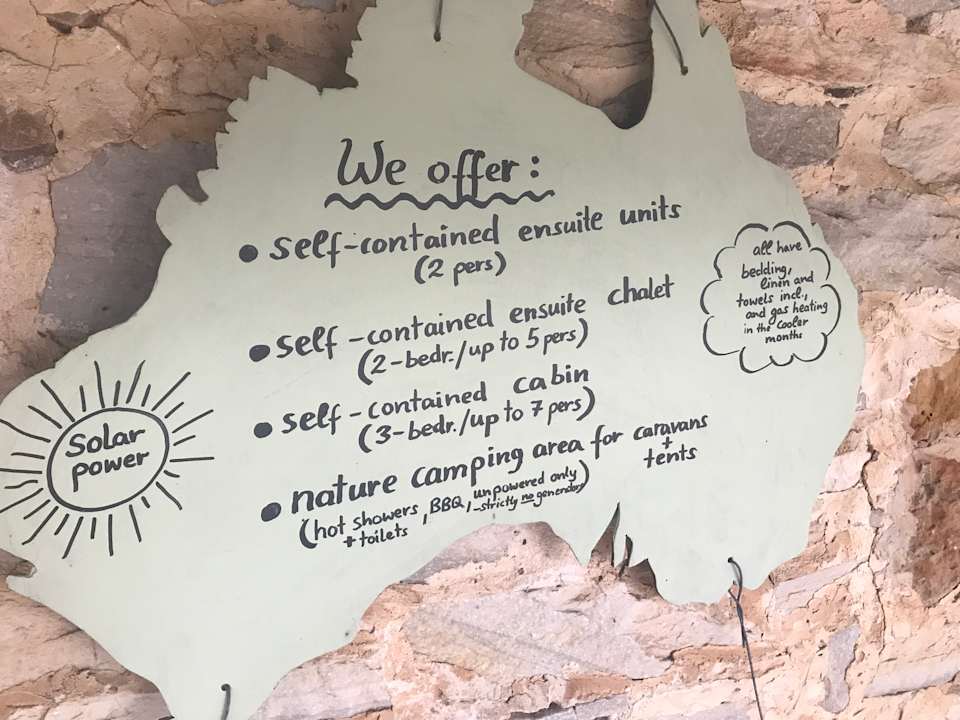 We offer:
• self-contained ensuite units
(2 pers)
• self-contained ensuite chalet
(2-bedr./up to 5 pers)
• self-contained cabin
(3-bedr./up to 7 pers)
• nature camping area for caravans
+
tents
(hot showers, BBQ, unpowered only
+ toilets
- strictly no generators)
all have
bedding,
linen and
towels incl.,
and gas heating
in the cooler
months
Solar
power